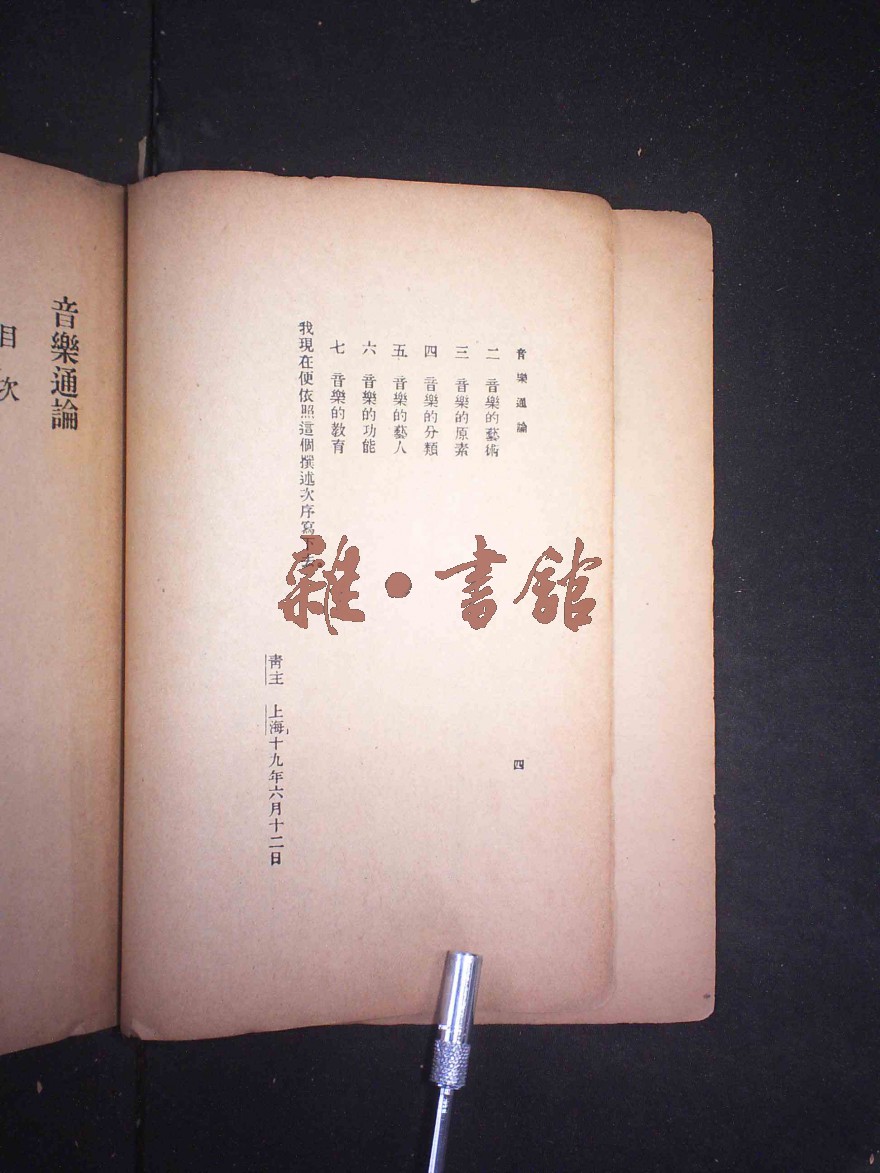 音樂通論
二 音樂的藝術
三 音樂的原素
四 音樂的分類
五 音樂的藝人
六 音樂的功能
七 音樂的教育
我現在便依照這個撰述次序寫下去。
青主 上海十九年六月十二日
四
音樂通論
目次
雜·書館